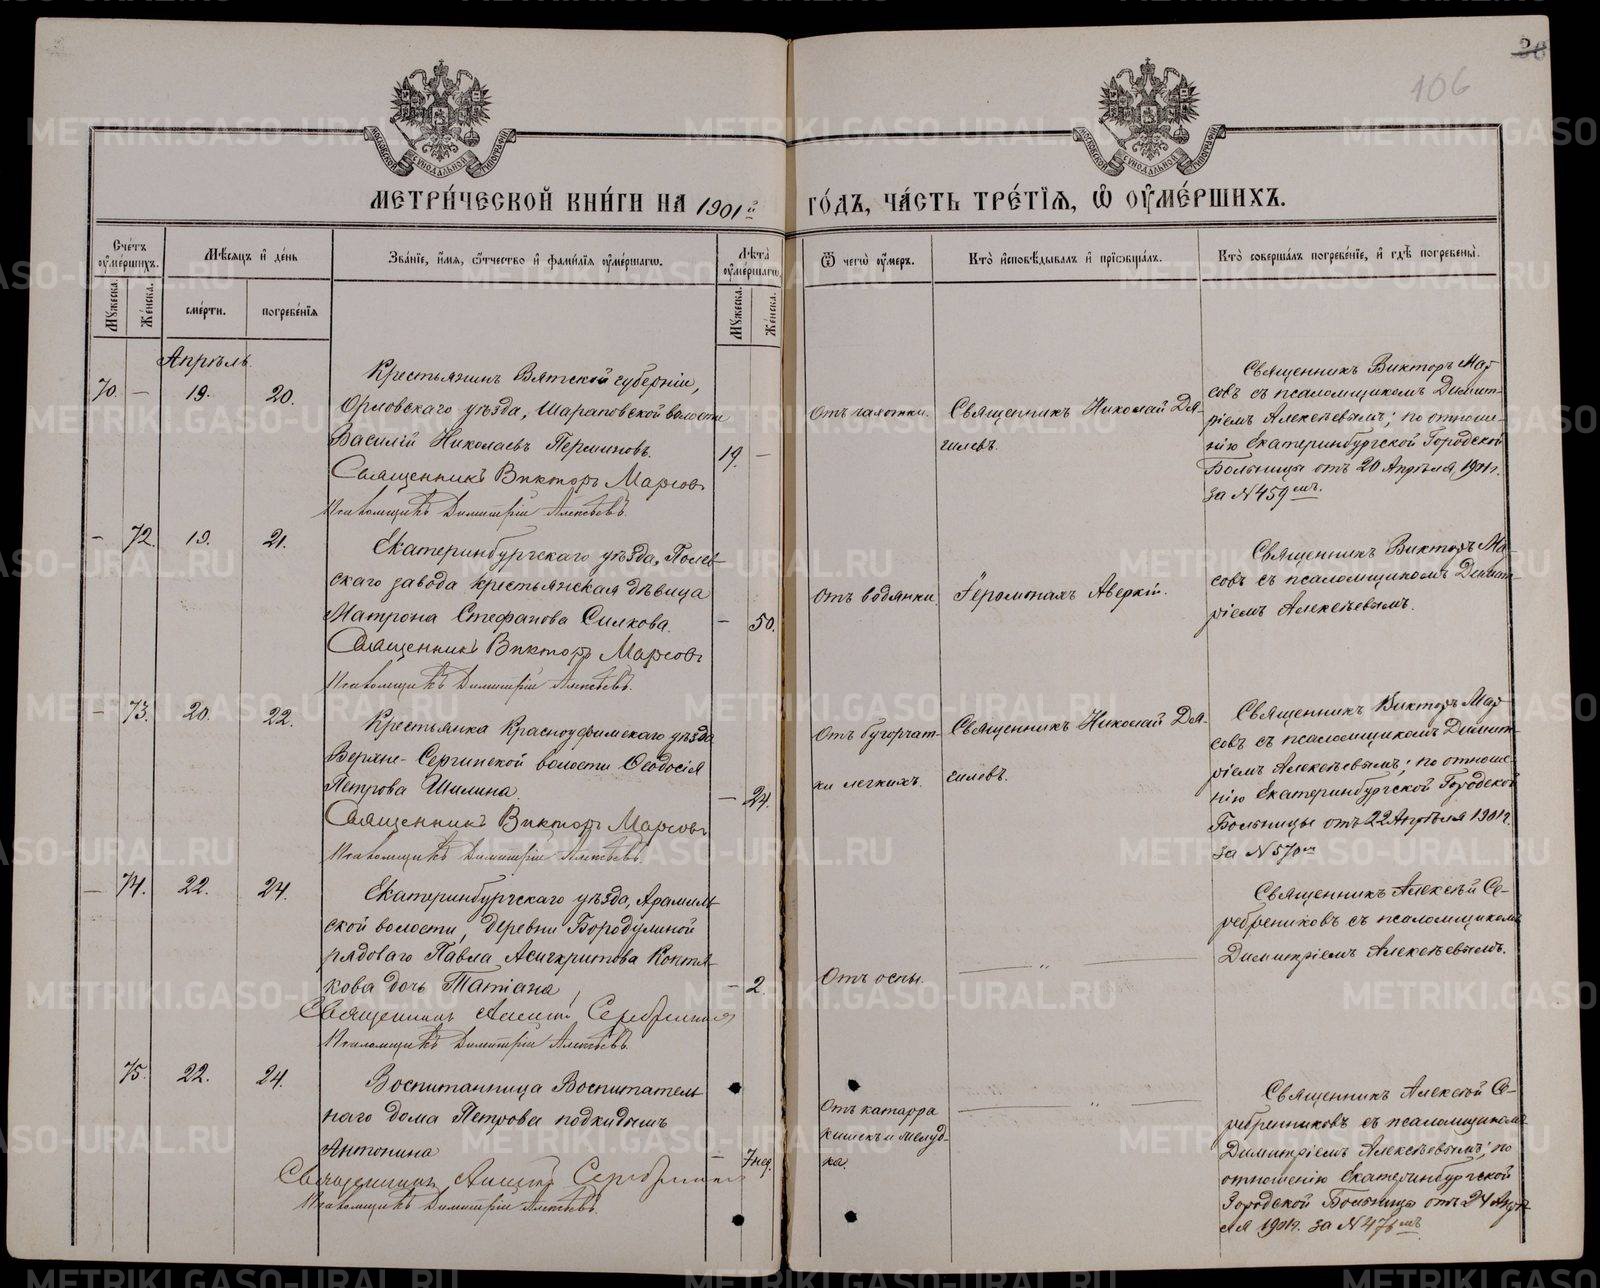 106
МЕТРИ́ЧЕСКОЙ КНИ́ГИ НА 1901й ГО́ДЪ, ЧА́СТЬ ТРЕ́ТІЯ, Ѡ ОУМЕ́РШИХЪ.
Счетъ оумершихъ.
Мужеска.
Женска.
Мѣсяцъ и день
смерти.
погребенія
Званіе, имя, отчество и фамилія оумершагѡ.
Лѣта оумершагѡ.
Мужеска.
Женска.
Ѿ чегѡ оумеръ.
Кто исповѣдывалъ и пріобщалъ.
Кто совершалъ погребеніе, и гдѣ погребены.
Апрѣль.
70. — 19. 20.
Крестьянинъ Вятской губерніи,
Орловскаго уѣзда, Шараповской волости
Василій Николаевъ Перминовъ.
19. —
Священникъ Викторъ Марсовъ
Псаломщикъ Димитрій Алексѣевъ.
Отъ чахотки.
Священникъ Николай Дя-
гилевъ.
Священникъ Викторъ Мар
совъ съ псаломщикомъ Димит-
ріемъ Алексѣевымъ; по отноше-
нію Екатеринбургской Городской
Больницы отъ 20 Апрѣля 1901 г.
за N 459мъ.
— 72. 19. 21.
Екатеринбургскаго уѣзда, Полев-
скаго завода крестьянская дѣвица
Матрона Стефанова Силкова.
— 50.
Священникъ Викторъ Марсовъ
Псаломщикъ Димитрій Алексѣевъ.
Отъ водянки.
Іеромонахъ Аверкій.
Священникъ Викторъ Ма
совъ съ псаломщикомъ Димит-
ріемъ Алексѣевымъ.
— 73. 20. 22.
Крестьянка Красноуфимскаго уѣзда
Верхне-Сергинской волости Ѳеодосія
Петрова Шилина.
— 24.
Священникъ Викторъ Марсовъ
Псаломщикъ Димитрій Алексѣевъ.
Отъ бугорчат-
ки легкихъ.
Священникъ Николай Дя-
гилевъ.
Священникъ Викторъ Мар
совъ съ псаломщикомъ Димит-
ріемъ Алексѣевымъ; по отноше-
нію Екатеринбургской Городской
Больницы отъ 22 Апрѣля 1901 г.
за N 570мъ
— 74. 22. 24.
Екатеринбургскаго уѣзда, Арамиль-
ской волости, деревни Бородулиной
рядоваго Павла Асигкритова Коптя-
кова дочь Татіана
— 2.
Священникъ Алексій Серебренниковъ
Псаломщикъ Димитрій Алексѣевъ.
Отъ оспы.
— „ —
Священникъ Алексѣй Се-
ребрениковъ съ псаломщикомъ
Димитріемъ Алексѣевымъ.
75. 22. 24.
Воспитанница Воспитатель-
наго дома Петрова подкидышъ
Антонина
— 7 нед.
Священникъ Алексій Серебренниковъ
Псаломщикъ Димитрій Алексѣевъ.
Отъ катарра
кишекъ и желуд-
ка.
— „ —
Священникъ Алексѣй Се-
ребренниковъ съ псаломщикомъ
Димитріемъ Алексѣевымъ; по
отношенію Екатеринбургской
Городской Больницы отъ 24 Апрѣ-
ля 1901 г. за N 476мъ
METRIKI.GASO-URAL.RU